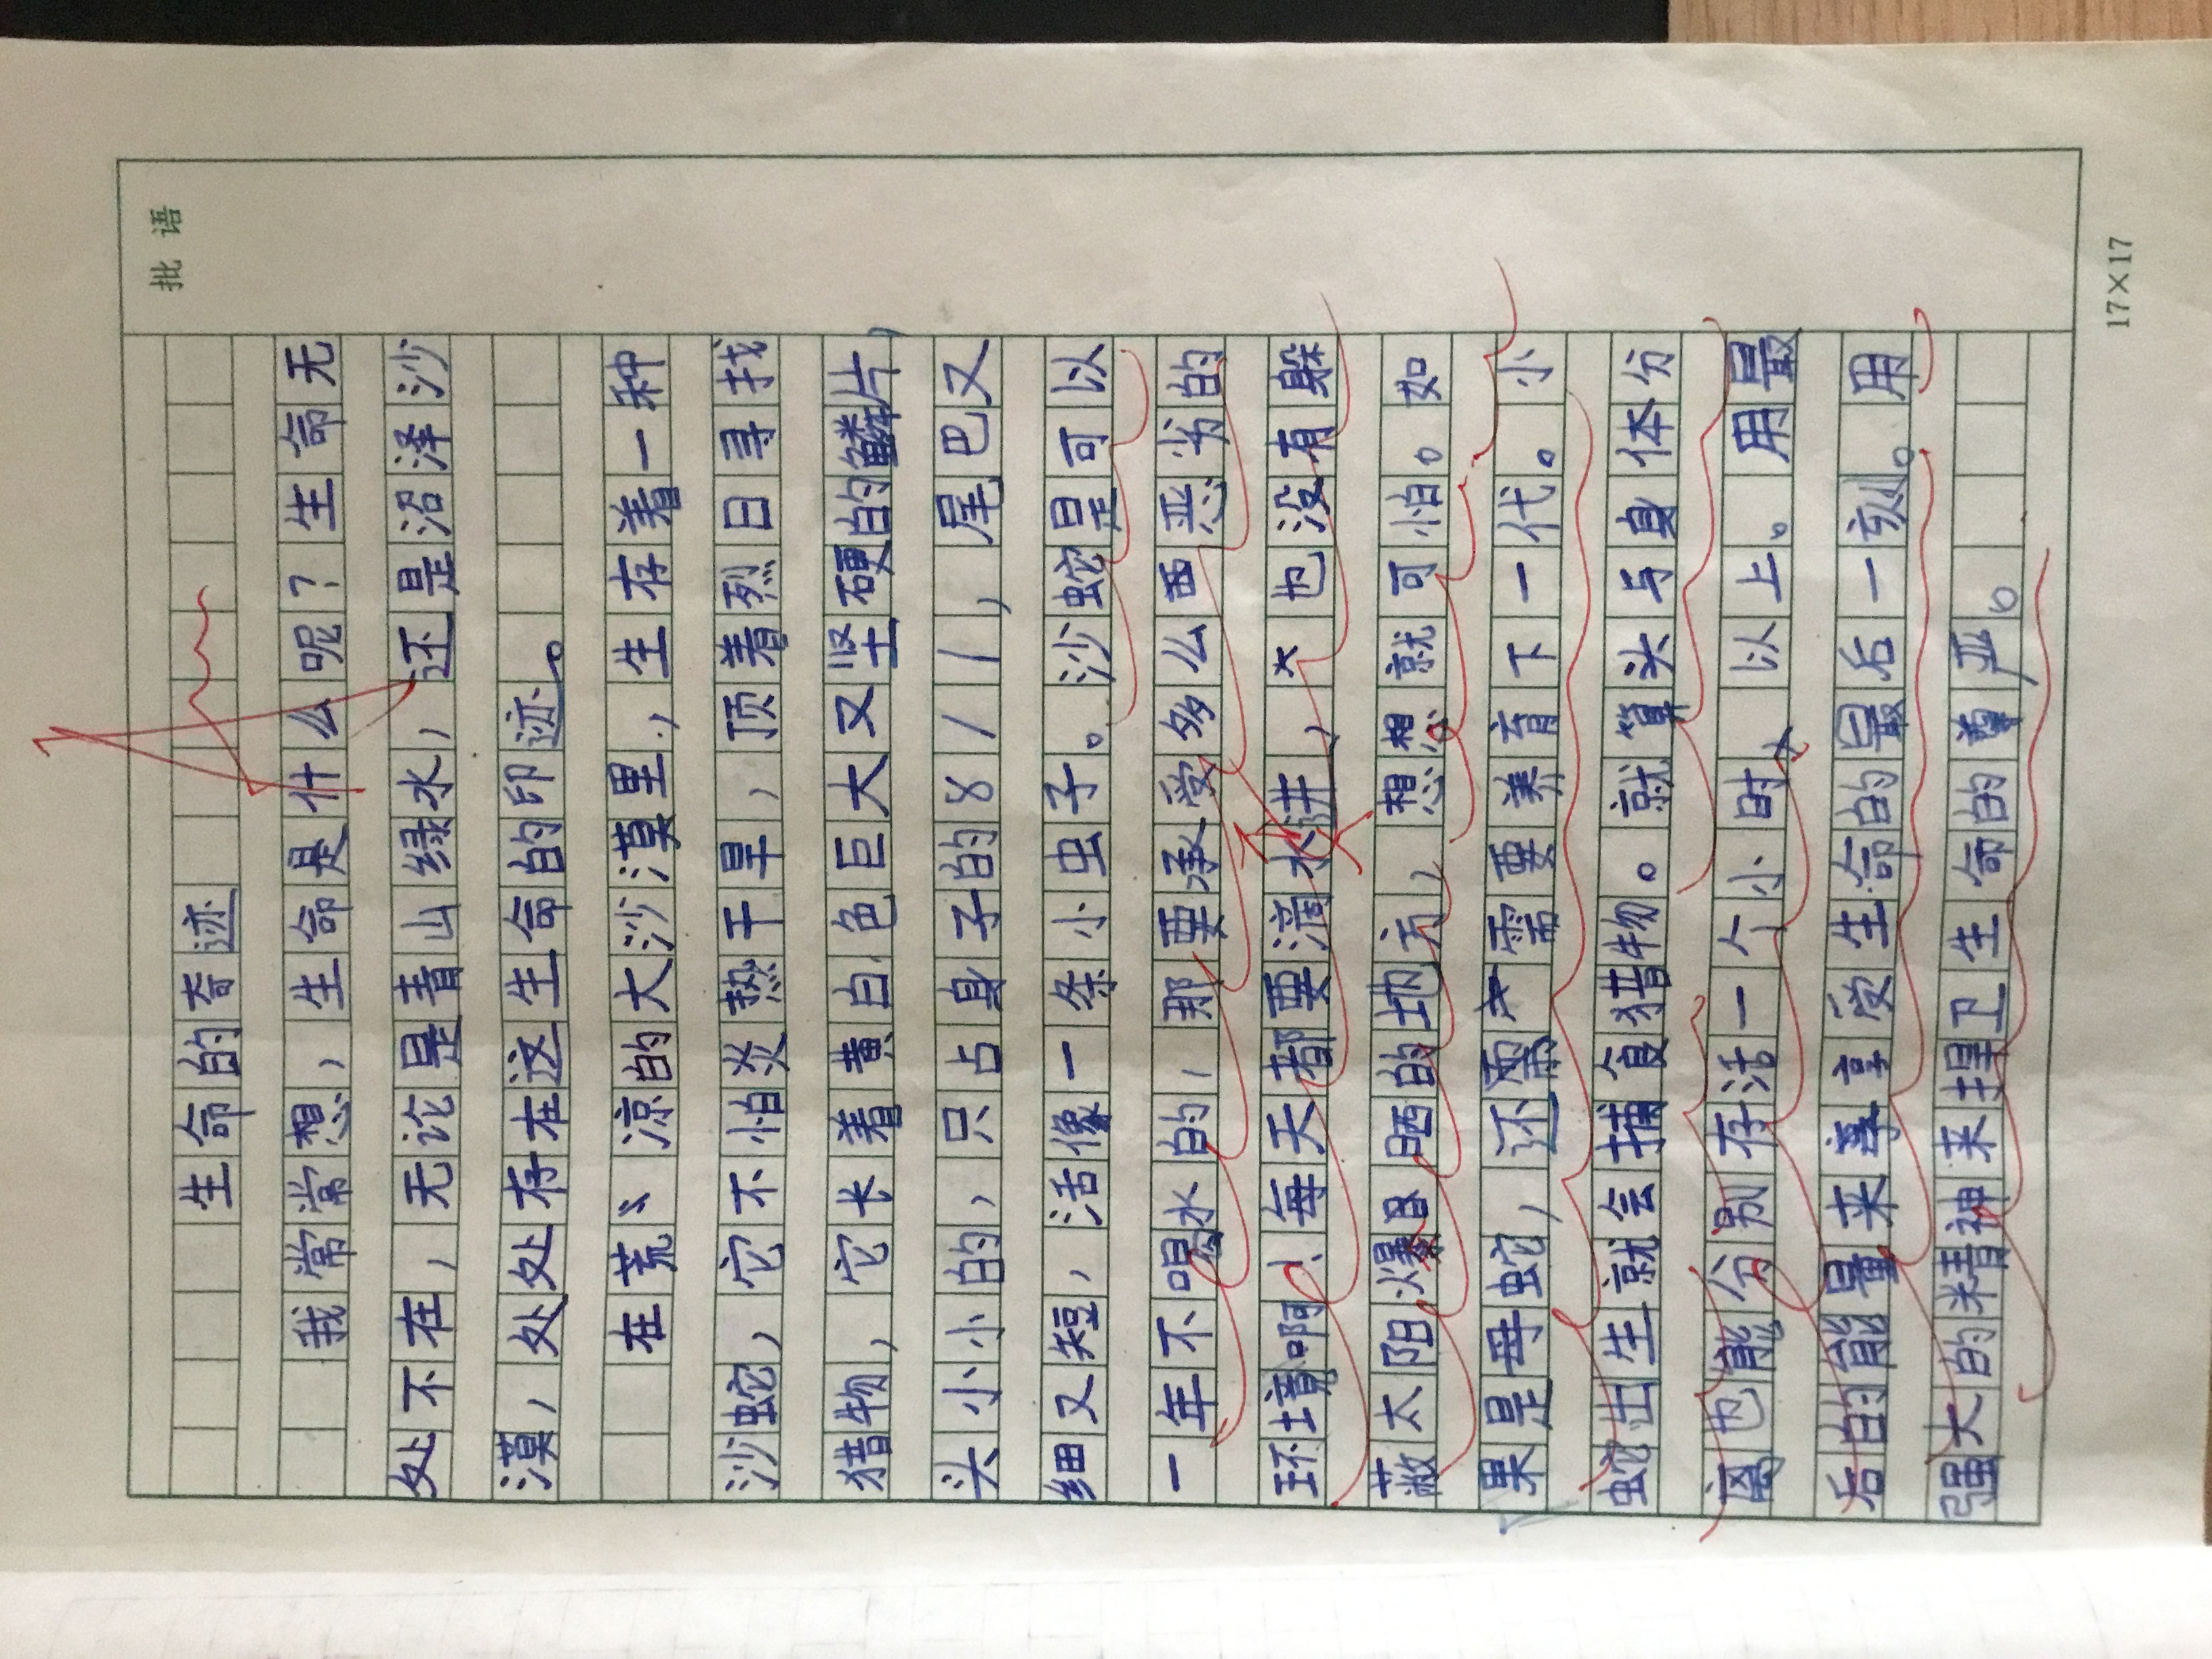 批 语
生命的奇迹
我常常想,生命是什么呢?生命无
处不在,无论是青山绿水,还是沼泽沙
漠,处处存在这生命的印迹。
在荒凉的大沙漠里,生存着一种
沙蛇,它不怕炎热干旱,顶着烈日寻找
猎物,它长着黄白色巨大又坚硬的鳞片,
头小小的,只占身子的8/1,尾巴又
细又短,活像一条小虫子。沙蛇是可以
一年不喝水的,那要承受多么恶劣的
环境啊!每天都要滴水,也没有躲
蔽太阳爆晒的地方,想想就可怕。如
果是母蛇,还需要养育下一代。小
蛇出生就会捕食猎物。就算头与身体分
离也能分别存活一个小时以上。用最
后的能量来享受生命的最后一刻。用
强大的精神来捍卫生命的尊严。
17×17